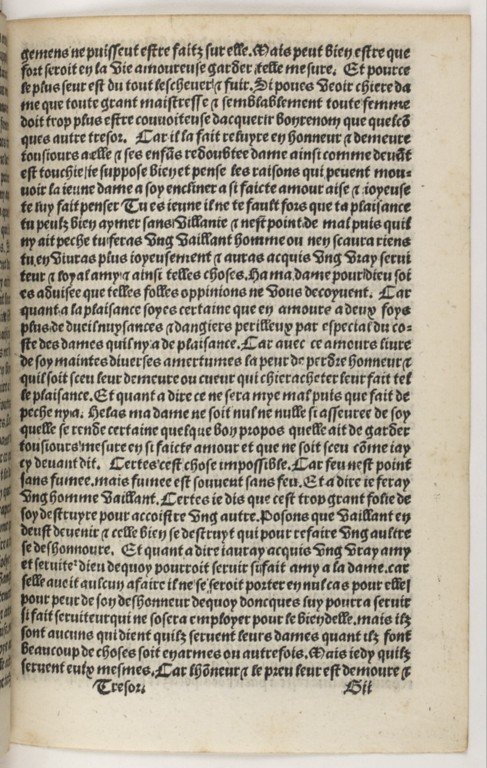 gemens ne puissent estre faitz sur elle. Mais peut bien estre que
fort seroit en la Vie amoureuse garder telle mesure. Et pource
le plus seur est du tout leschever ⁊ fuir. Si poues Veoir chiere da
me que toute grant maistresse ⁊ semblablement toute femme
doit trop plus estre couvoiteuse dacquerir bon renom que quelcõ
ques autre tresor. Car il la fait reluyre en honneur ⁊ demeure
tousiours a elle ⁊ ses enfãs redoubtee dame ainsi comme devãt
est touchie ie suppose bien et pense les raisons qui peuent mou-
voir la ieune dame a soy encliner a si faicte amour aise ⁊ ioyeuse
te luy fait penser Tu es ieune il ne te fault fors que ta plaisance
tu peulz bien aymer sans Villanie ⁊ nest point de mal puis quil
ny ait peche tu feras Vng Vaillant homme ou ney scaura riens
tu en Viuras plus ioyeusement ⁊ auras acquis Vng Vray servi
teur ⁊ loyal amy ⁊ ainsi telles choses. Ha ma dame pour dieu soi
es advisee que telles folles oppinions ne Vous decoyuent. Car
quant a la plaisance soyes certaine que en amours a deux foys
plus de dueil nuysances ⁊ dangiers perilleux par especial du co-
ste des dames quil ny a de plaisance. Car avec ce amours livre
de soy maintes diverses amertumes la peur de perdre honneur ⁊
quil soit sceu leur demeure ou cueur qui chier acheter leur fait tel
le plaisance. Et quant a dire ce ne sera mye mal puis que fait de
peche ny a. Helas ma dame ne soit nul ne nulle si asseuree de soy
quelle se rende certaine quelque bon propos quelle ait de garder
tousiours mesure en si faicte amour et que ne soit sceu cõme iay
cy devant dit. Certes cest chose impossible. Car feu nest point
sans fumee. mais fumee est souvent sans feu. Et a dire ie feray
Vng homme Vaillant. Certes ie dis que cest trop grant folie de
soy destruyre pour accoistre Vng autre. Posons que Vaillant en
deust devenir ⁊ celle bien se destruyt qui pour refaire Vng aultre
se deshonnoure. Et quant a dire iauray acquis Vng Vray amy
et servite' dieu dequoy pourroit servir si fait amy a la dame. car
selle aveit aulcun afaire il ne se seroit porter en nul cas pour elle
pour peur de son deshonneur dequoy doncques luy pourra servir
si fait serviteur qui ne sosera employer pour le bien delle. mais ilz
sont aucuns qui dient quilz servent leurs dames quant ilz font
beaucoup de choses soit en armes ou autrefois. Mais ie dy quilz
servent eulx mesmes. Car lhõneur ⁊ le preu leur est demoure ⁊
Tresor. Gii